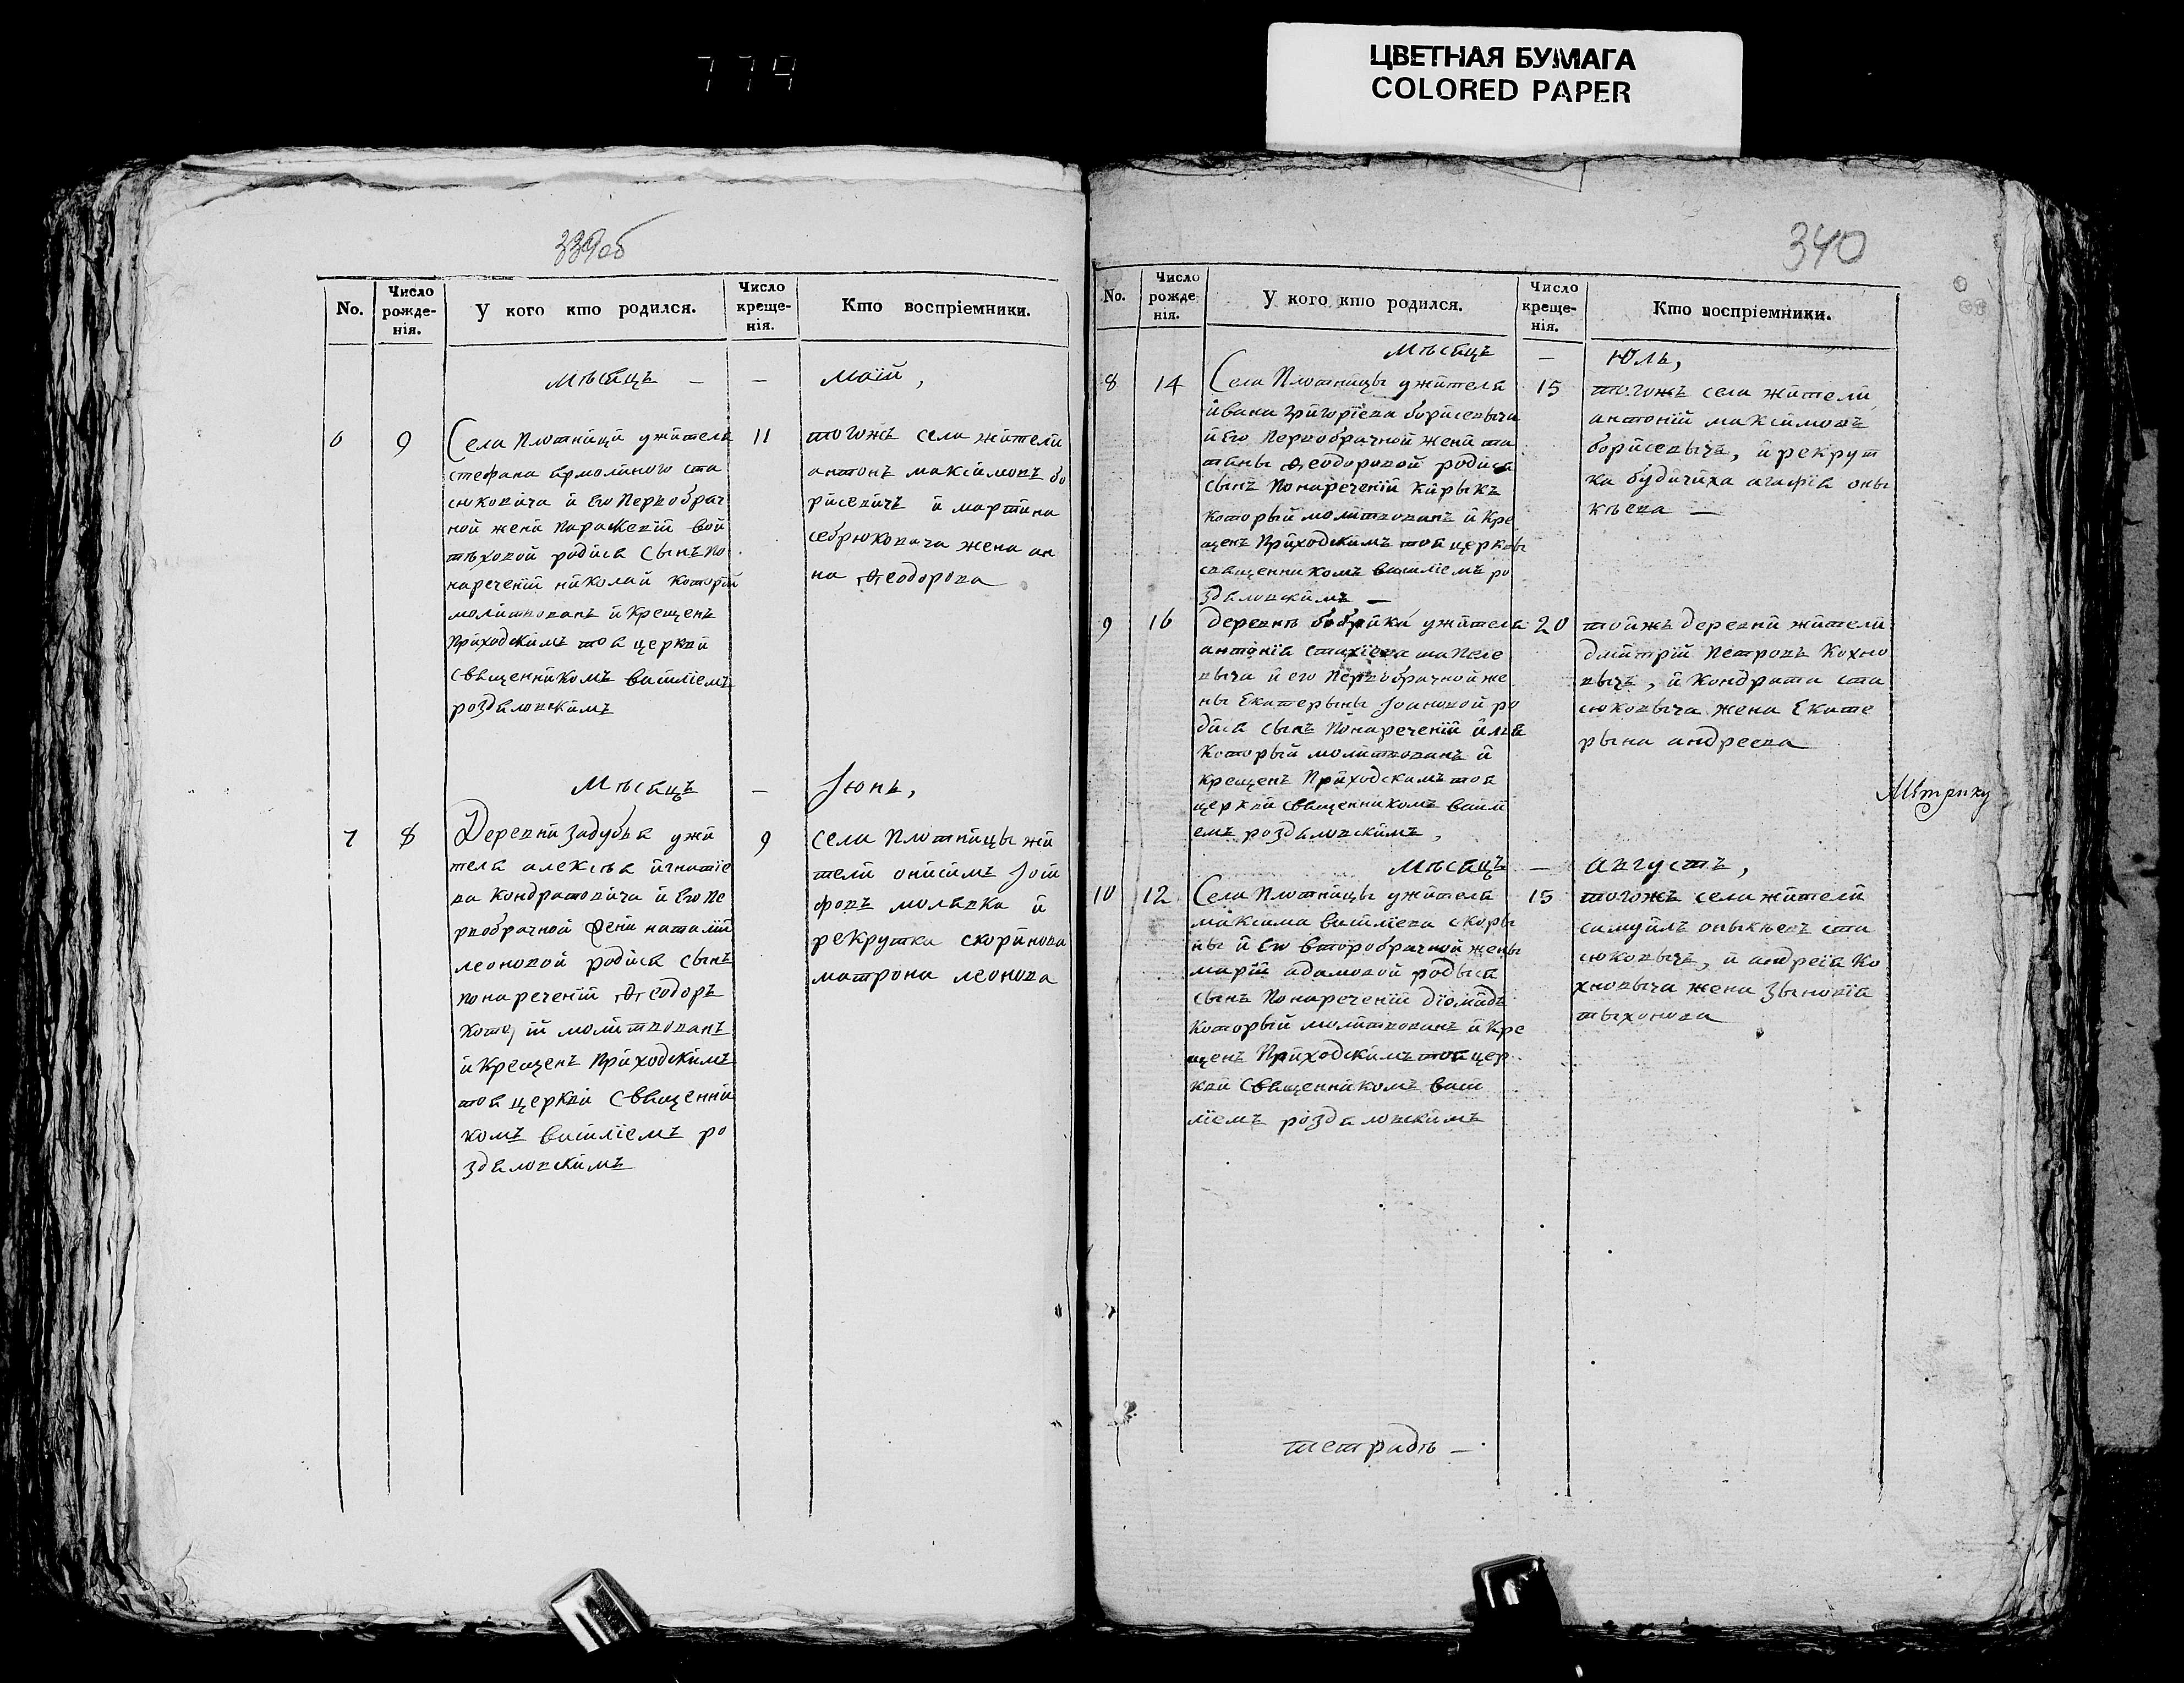 774
ЦВЕТНАЯ БУМАГА
COLORED PAPER
339об
No.
Число рожде-нія.
У кого кто родился.
Число креще-нія.
Кто воспріемники.
Мѣсяцъ – – маій,
6 9
Села Плотници ужителя
стефана ярмолиного ста
сюковича и Его Первобрач
ной жени Параскевіи вой
тѣховой родися Сынъ по
наречении николай которій
молитвованъ и Крещенъ
Приходскимъ тоя церкви
священникомъ василіемъ
роздяловскимъ
11
тогожъ села жители
антонъ максимовъ бо
рисевичъ и мартина
себрюковича жена ан
на Ѳеодорова
Мѣсяцъ – Іюнь,
7 8
Деревни задубья ужи
теля алексѣя игнатіе
ва Кондратовича и Его Пе
рвобрачной жени наталіи
леоновой родися Сынъ
понаречении Ѳеодоръ
который молитвованъ
и Крещенъ Приходскимъ
тоя церкви Священни
комъ василіемъ ро
здяловскимъ
9
села Плотницы жи
тели онисимъ Іоси
фовъ молявка и
рекрутка скоринова
матрона леонова
340
No.
Число рожде нія.
У кого кто родился.
Число креще-нія.
Кто воспріемники.
Мѣсяцъ – юль,
8 14
Села Плотницы ужителя
ивана григоріева борисевыча
и Его Первобрачной жени та
тяны Ѳеодоровой родися
сынъ Понаречении кирыкъ
который молитвованъ и Кре
щенъ Приходскимъ тоя церквы
священникомъ василіемъ ро
здяловскимъ –
15
тогожъ села жители
антоній максимовъ
борисевычъ, и рекрут
ка будичиха агафія оны
кѣева –
9 16
деревнѣ бобрики ужителя
антонія стахіева шапеле
выча и его Первобрачной же
ны Екатерыны Іоановой ро
дися сынъ Понаречении илія
Который молитвованъ и
крещенъ Приходскимъ тоя
церкви священникомъ васили
емъ роздяловскимъ,
20
тоижъ деревни жители
дмитрій Петровъ Кохно
вычъ, и Кондрата ста
сюковыча жена Екате
рына андреева
Мѣтрику
Мѣсяцъ – августъ,
10 12
Села Плотницы ужителя
максима василіева скоры
ны и Его второбрачной жены
маріи адамовой родыся
сынъ Понаречении діомидъ
Который молитвованъ и Кре
щенъ Приходскимъ тоя цер
кви священникомъ васи
ліемъ роздяловскимъ
15
тогожъ села жители
самуилъ оныкѣевъ ста
сюковычъ, и андрея Ко
хновыча жена Зыновія
тыхонова
тетрадь –